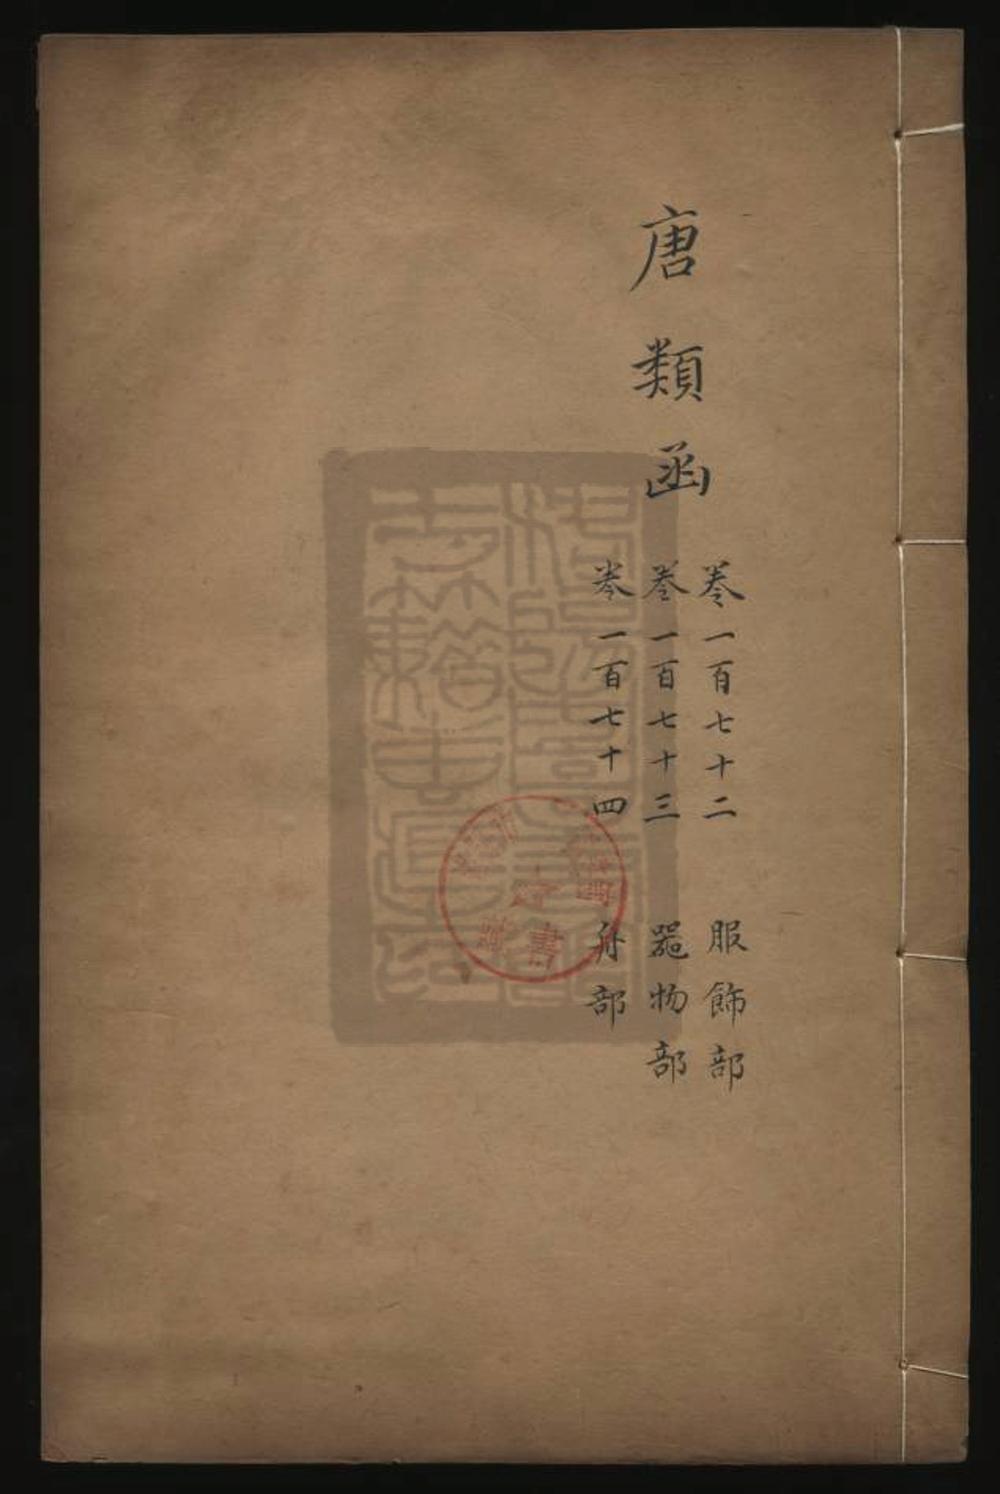 唐類函
卷一百七十二 服飾部
卷一百七十三 器物部
卷一百七十四 舟部